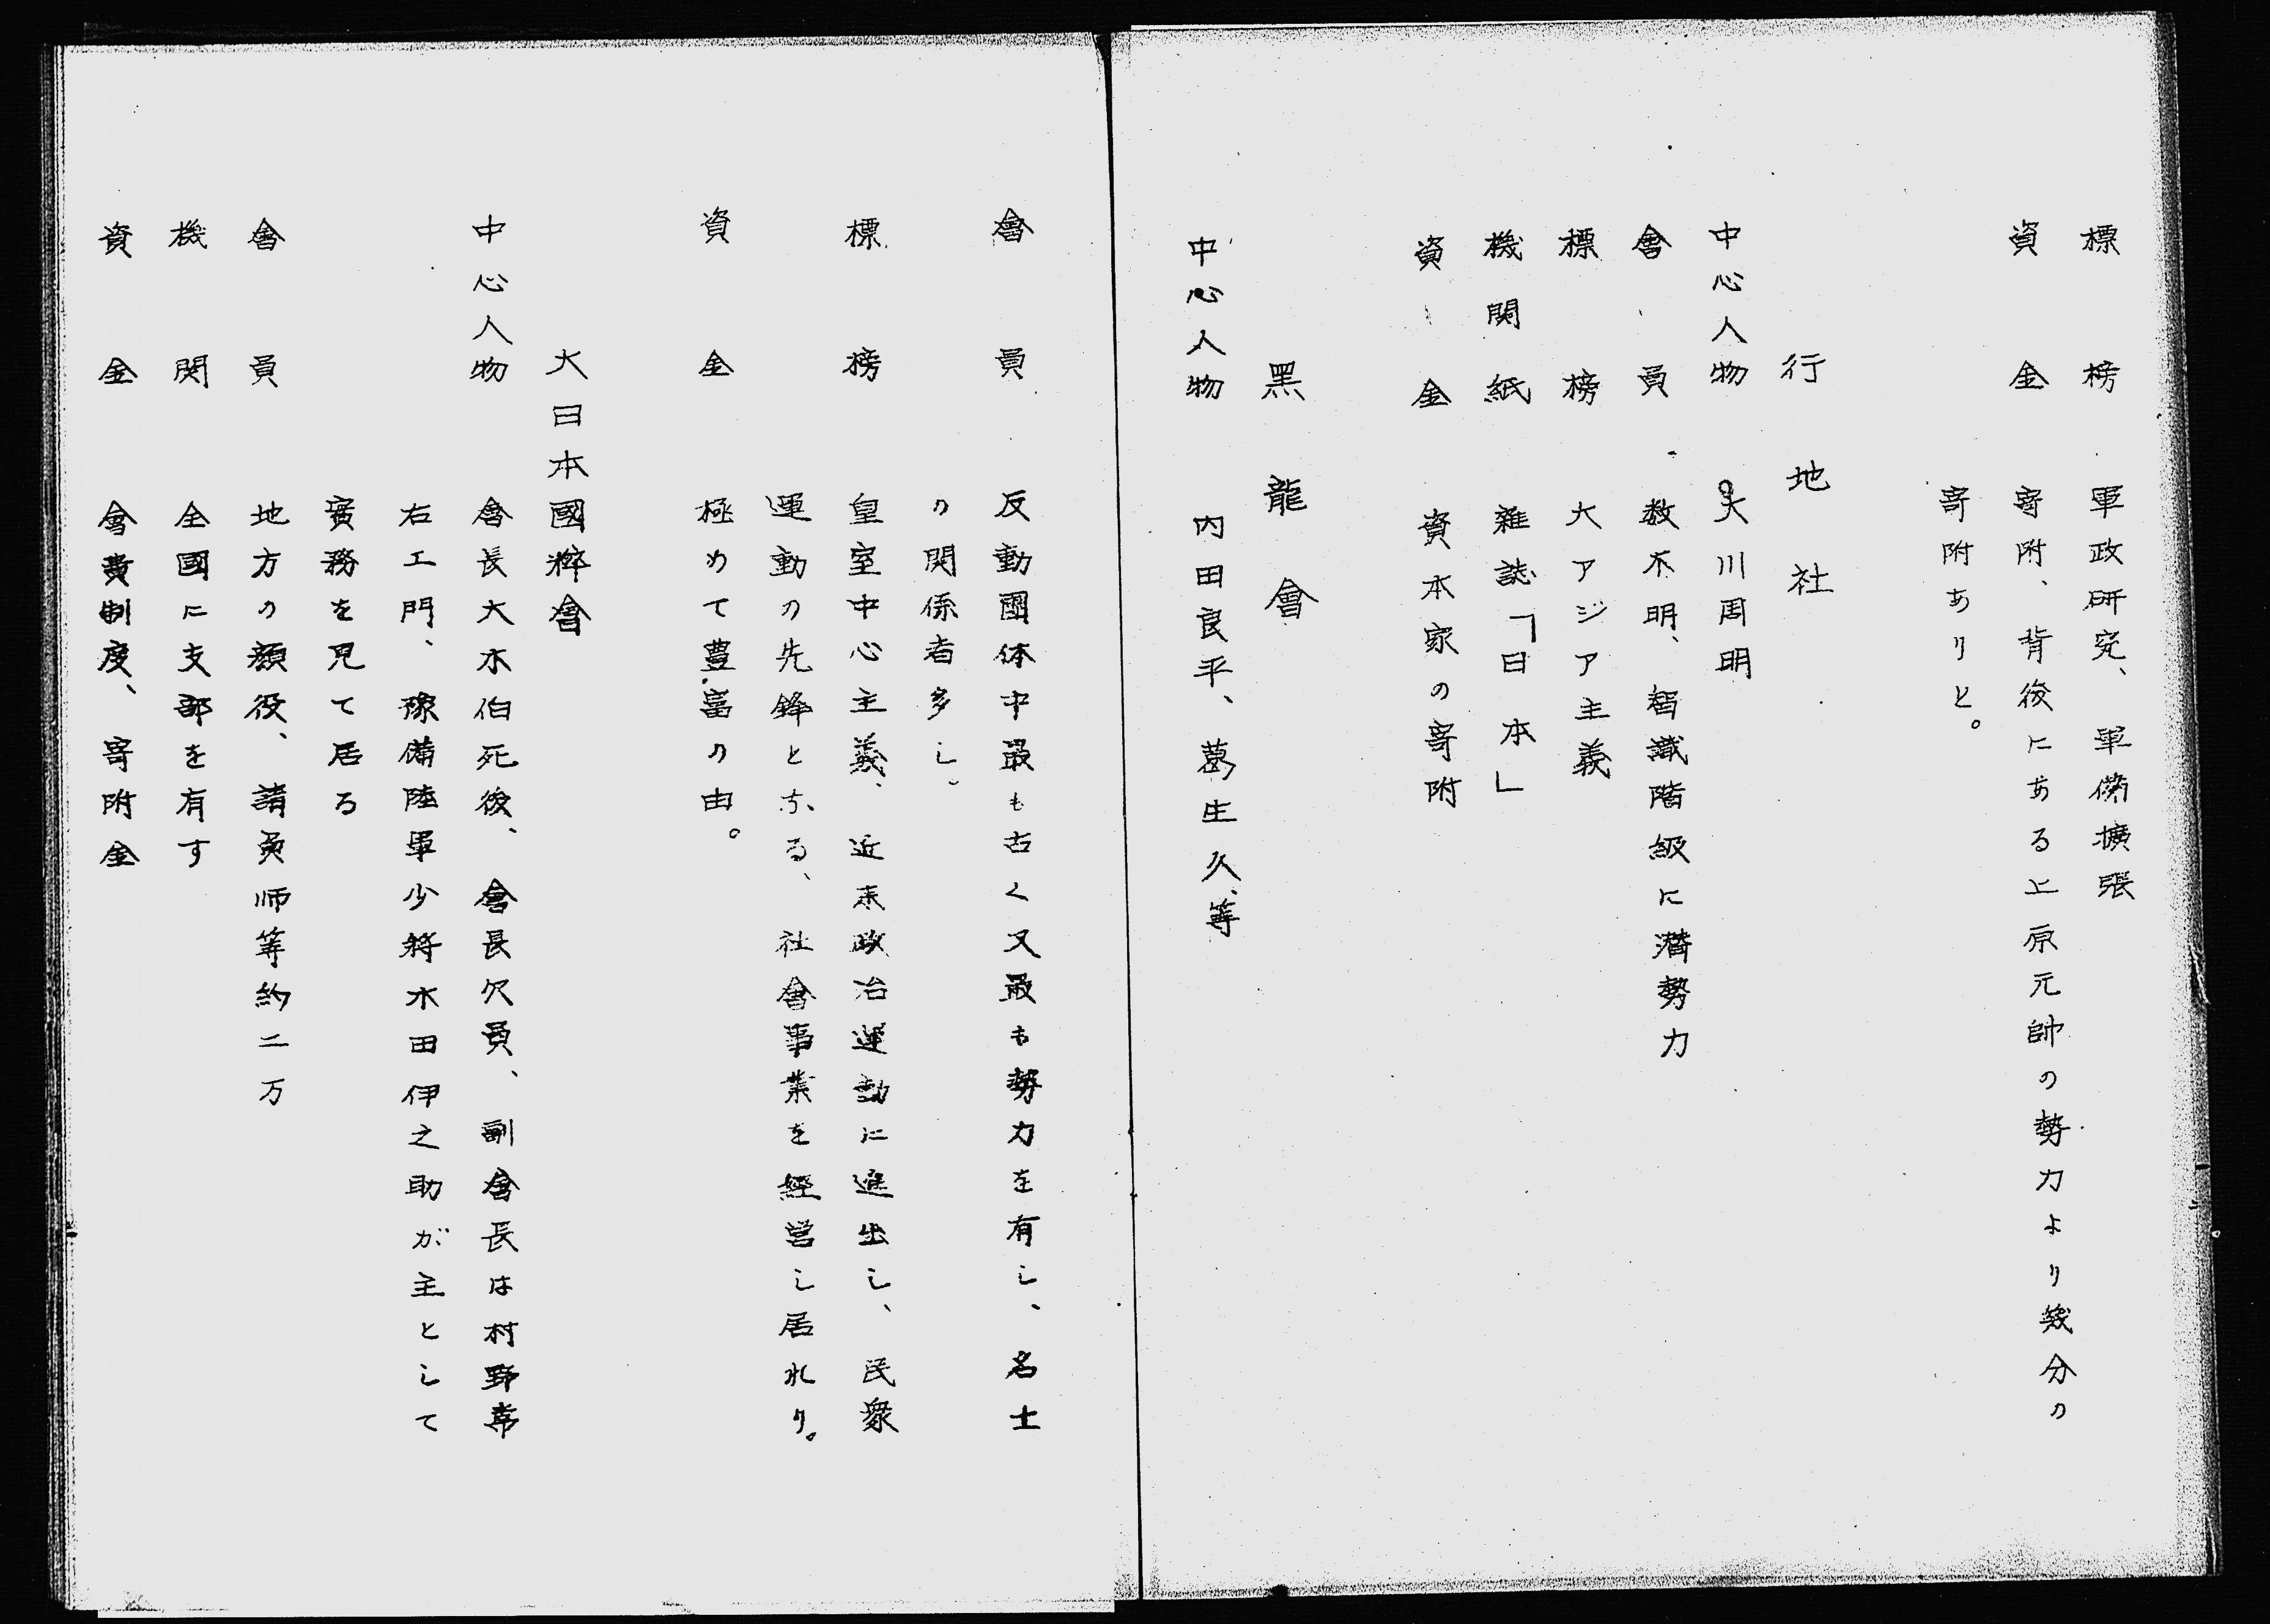 標榜 軍政研究、軍備擴張
資金 寄附、背後にある上原元帥の勢力より幾分の
寄附ありと。
行地社
中心人物 大川周明
會員 数不明、智識階級に潜勢力
標榜 大アジア主義
機関紙 雑誌「日本」
資金 資本家の寄附
黑龍會
中心人物 内田良平、葛生久、等
會員 反動團体中最も古く又最も勢力を有し、名士
の関係者多し。
標榜 皇室中心主義、近来政治運動に進出し、民衆
運動の先鋒となる、社會事業を經営し居れり。
資金 極めて豊富の由。
大日本國粹會
中心人物 會長大木伯死後、會長欠員、副會長は村野常
右エ門、豫備陸軍少将水田伊之助が主として
實務を見て居る
會員 地方の顔役、請負师等約二万
機関 全國に支部を有す
資金 會費制度、寄附金